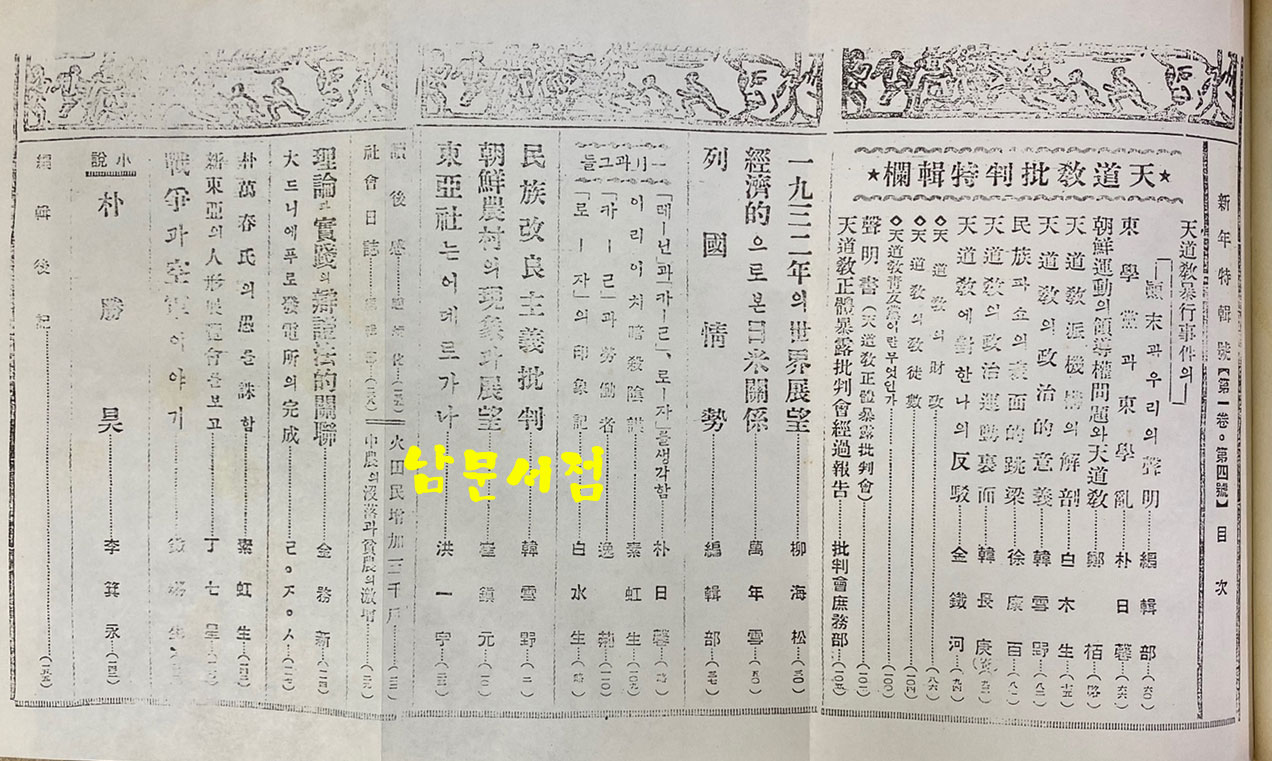 新年特輯號【第一卷 · 第四號】目次
天道教暴行事件의
顚末과우리의聲明 編輯部
★天道教批判特輯欄★
東學黨과東學亂 朴日馨
朝鮮運動의領導權問題와天道教 鄭栢
天道教派機構의解剖 白木生
天道教의政治的意義 韓雪野
民族파쇼의表面的跳梁 徐康百
天道教의政治運動裏面 韓長庚
天道教에對한나의反駁 金鐵河
◇天道教의財政
◇天道教의教徒數
◇天道教靑友黨이란무엇인가
聲明書(天道教正體暴露批判會)
天道教正體暴露批判會經過報告 批判會庶務部
一九三二年의世界展望 柳海松
經濟的으로본日米關係 萬年雪
列國情勢 編輯部
一리과그들
「레ー닌」과「카ー르」、로ー자」를생각함 朴日馨
이리이치暗殺陰謀 素虹生
「카ー르」과勞働者
「로ー자」의印象記 白水生
民族改良主義批判 韓雪野
朝鮮農村의現象과展望 元
東亞社는어데르가나 洪一宇
讀後感
火田民增加三千戶
社會日誌
中農의沒落과貧農의激增
理論과實踐의辯證法的關聯 金務新
大드니에푸로發電所의完成 ㄹㅇㅈㅇㅅ
朴萬春氏의愚를誅함 素虹生
新東亞의人形展覽會를보고 丁七星
戰爭과空電이야기
小說 朴勝昊 李箕永
編輯後記
남문서점